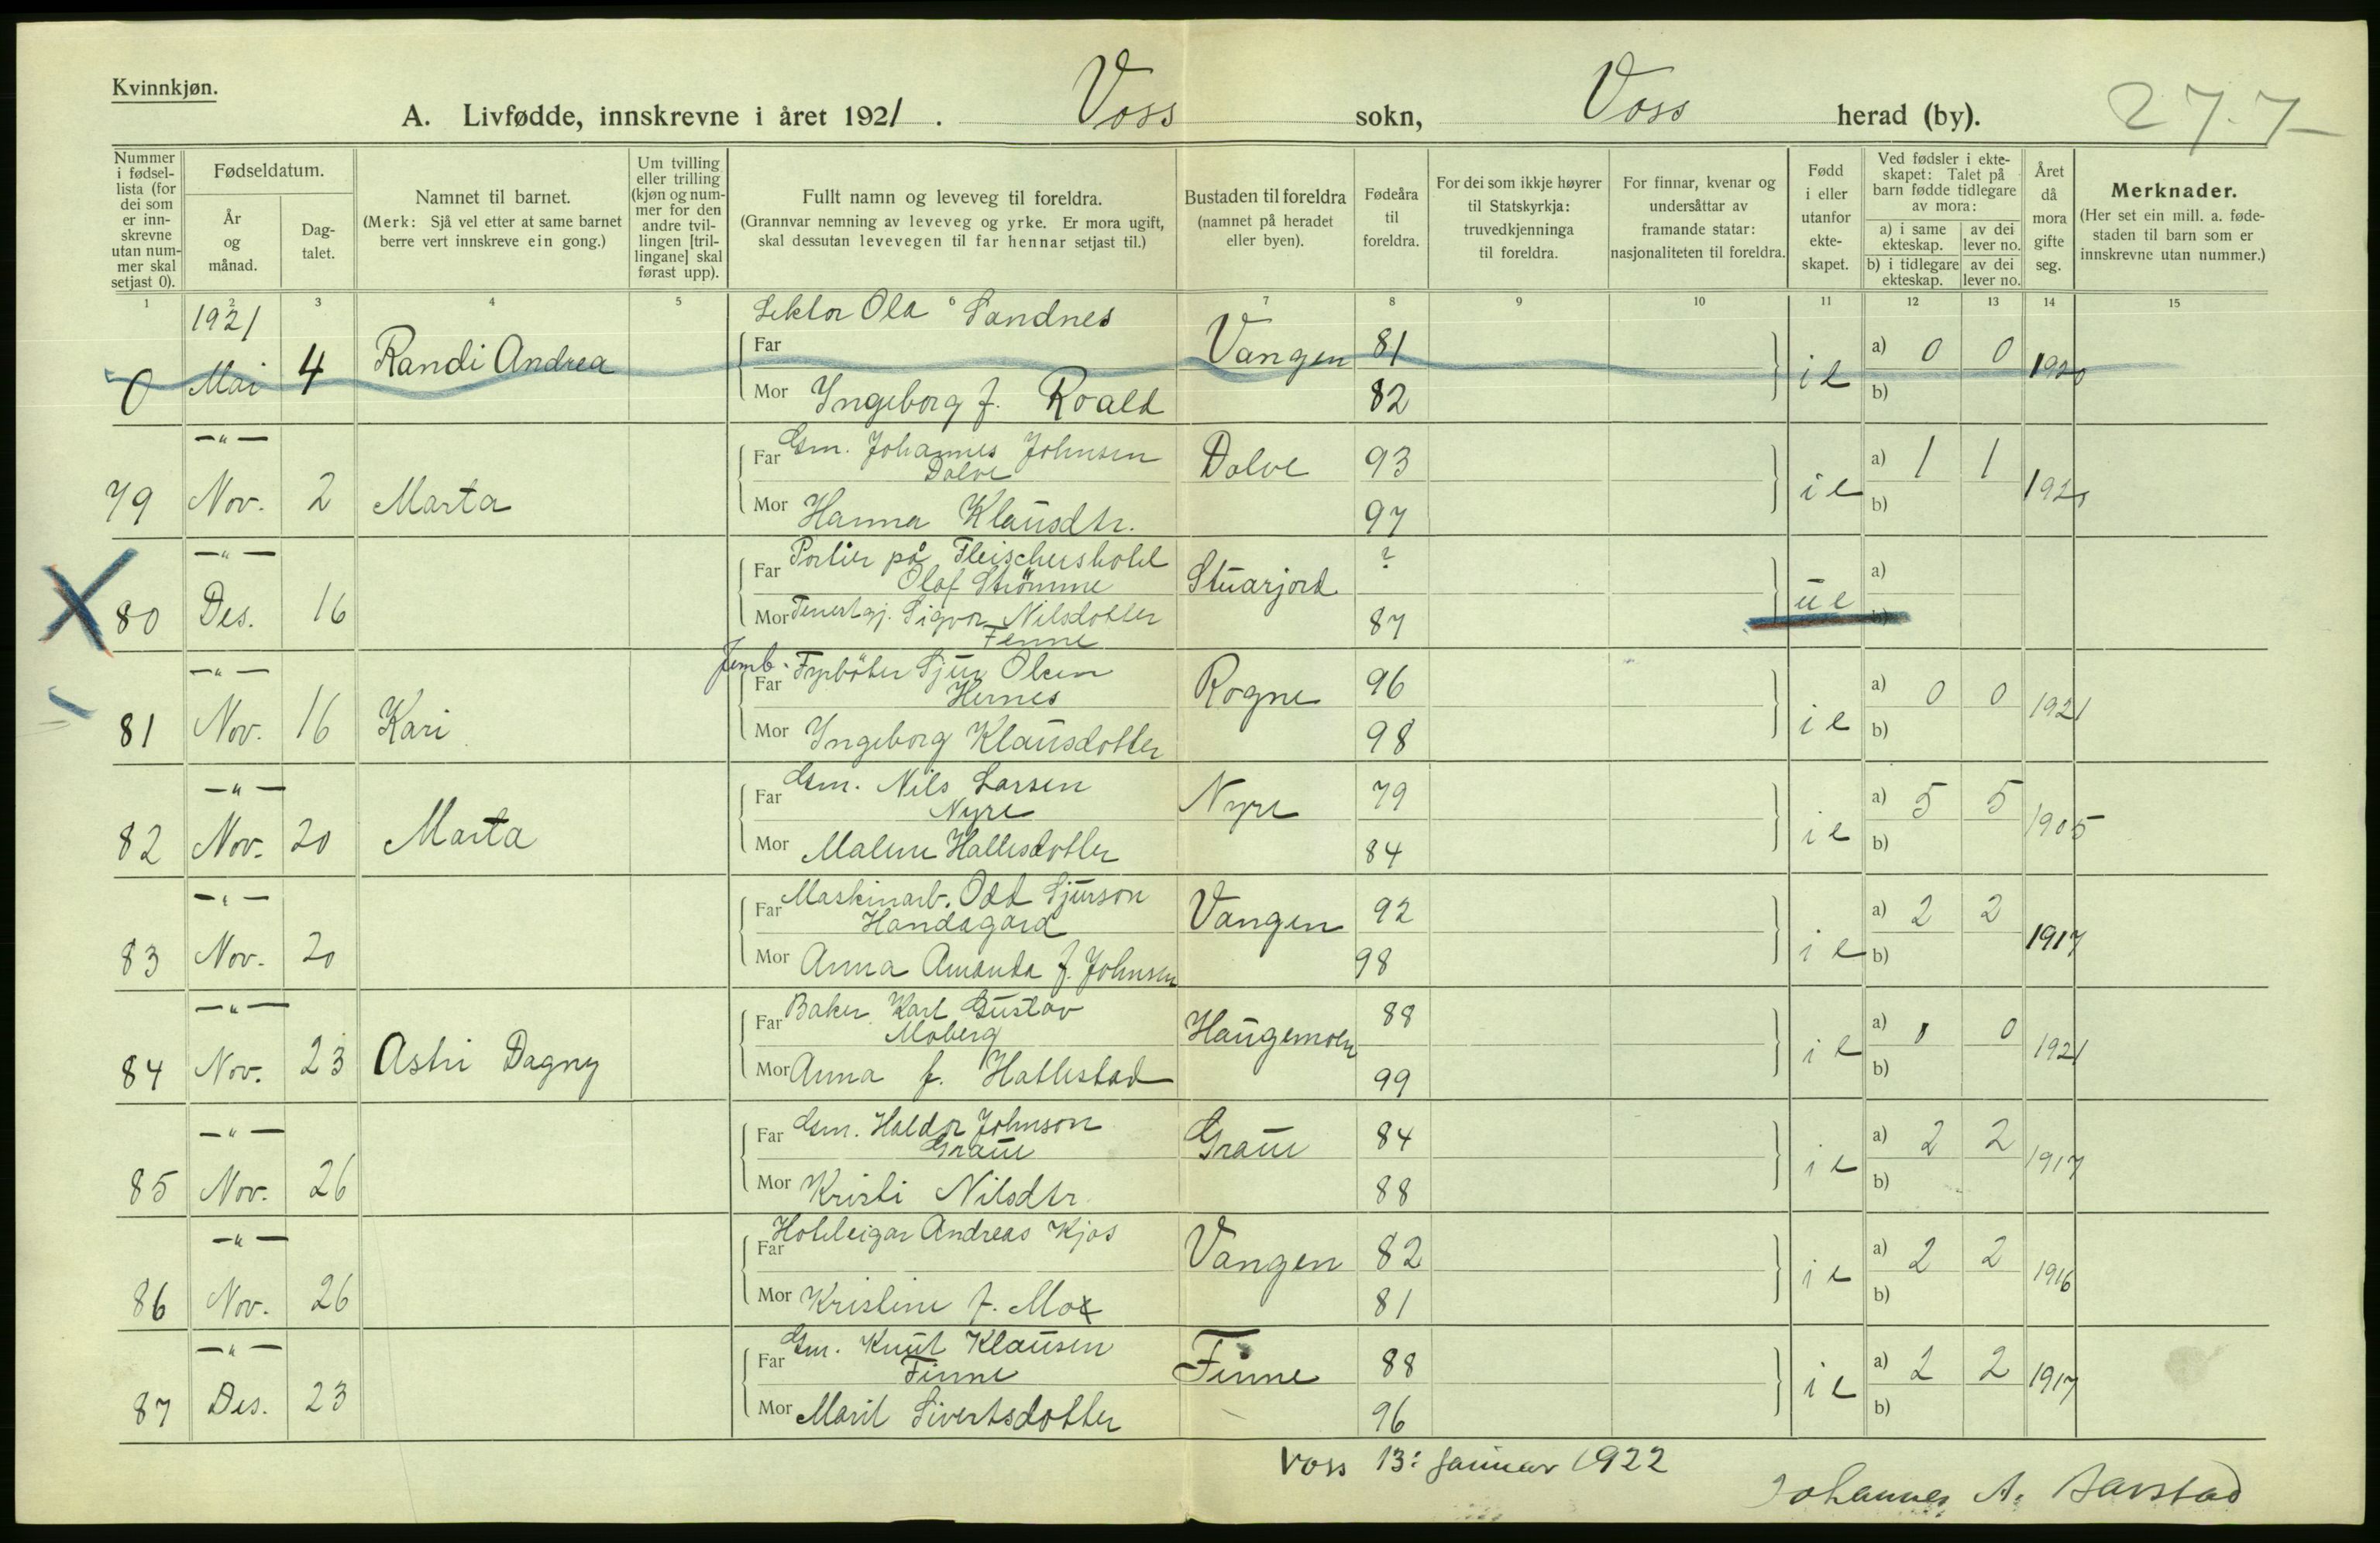 Kvinnkjøn.
A. Livfødde, innskrevne i året 1921. Voss sokn, Voss herad (by). 27.7
Nummer i fødsel-lista (for dei som er inn-skrevne utan num-mer skal setjast 0).
Fødseldatum.
År og månad.
Dag-talet.
Namnet til barnet.
(Merk: Sjå vel etter at same barnet berre vert innskreve ein gong.)
Um tvilling eller trilling (kjøn og num-mer for den andre tvil-lingen [tril-lingane] skal førast upp).
Fullt namn og leveveg til foreldra.
(Grannvar nemning av leveveg og yrke. Er mora ugift, skal dessutan levevegen til far hennar setjast til.)
Bustaden til foreldra
(namnet på heradet eller byen).
Fødeåra til foreldra.
For dei som ikkje høyrer til Statskyrkja: truvedkjenninga til foreldra.
For finnar, kvenar og undersåttar av framande statar: nasjonaliteten til foreldra.
Fødd i eller utanfor ekte-skapet.
Ved fødsler i ekte-skapet: Talet på barn fødde tidlegare av mora:
a) i same ekteskap. av dei lever no.
b) i tidlegare ekteskap. av dei lever no.
Året då mora gifte seg.
Merknader.
(Her set ein mill. a. føde-staden til barn som er innskrevne utan nummer.)
1 2 3 4 5 6 7 8 9 10 11 12 13 14 15
1921 Lektor Ola Sandnes
0 Mai 4 Randi Andrea Far Vangen 81 i e a) 0 0 1920
Mor Ingeborg f. Roald 82 b)
—"— Far Gm. Johannes Johnsen Dolve 93 a) 1 1
Dolve
79 Nov. 2 Marta Mor Hanna Klausdtr. 97 i e b) 1920
—"— Far Portier på Fleischershotel Stuarjord ? a)
Olaf Strømme
80 Des. 16 Mor Tenestgj. Sigvor Nilsdotter 87 u e b)
Fenne
—"— Jernb. Far Fyrbøter Sjur Olsen Rogne 96 a) 0 0 1921
Hernes
81 Nov. 16 Kari Mor Ingeborg Klausdotter 98 i e b)
—"— Far Gm. Nils Larsen Nyre 79 a) 5 5 1905
Nyre
82 Nov. 20 Marta Mor Malene Hallesdotter 84 i e b)
—"— Far Maskinarb. Odd Sjurson Vangen 92 a) 2 2 1917
Handagard
83 Nov. 20 Mor Anna Amanda f. Johnsen 98 i e b)
—"— Far Baker Karl Gustav Haugemoen 88 a) 0 0 1921
Moberg
84 Nov. 23 Astri Dagny Mor Anna f. Hallestad 99 i e b)
—"— Far Gm. Haldor Johnson Graue 84 a) 2 2 1917
Graue
85 Nov. 26 Mor Kristi Nilsdtr. 88 i e b)
—"— Far Hoteleigar Andreas Kjos Vangen 82 a) 2 2 1916
86 Nov. 26 Mor Kristine f. Mox 81 i e b)
—"— Far Gm. Knut Klausen Finne 88 a) 2 2 1917
Finne
87 Des. 23 Mor Marit Sivertsdotter 96 i e b)
Voss 13: januar 1922
Johannes A. Aarstad